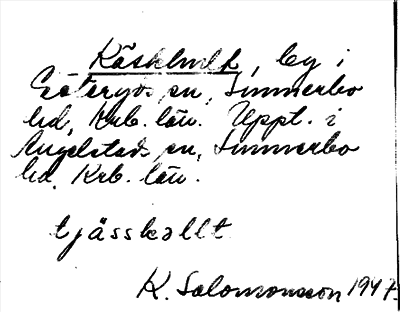 Käskhult, by i
Göteryds sn, Sunnerbo
hd, Krb. län. Uppt. i
Angelstads sn, Sunnerbo
hd. Krb. län.
tjässkallt
K. Salomonsson 1947.